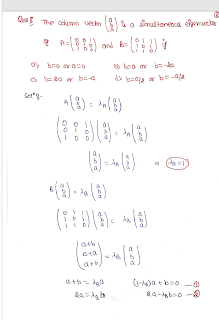 Ques The column vector (a b a) is a simultaneous eigenvector
of A = (0 0 1 0 1 0 1 0 0) and B = (0 1 1 1 0 1 1 1 0) if
a) b=0 or a=0 b) b=a or b=-2a
c) b=2a or b=-a d) b=a/2 or b=-a/2
A (a b a) = λA (a b a)
(0 0 1 0 1 0 1 0 0) (a b a) = λA (a b a)
(a b a) = λA (a b a) ⇒ λA=1
B (a b a) = λB (a b a)
(0 1 1 1 0 1 1 1 0) (a b a) = λB (a b a)
(a+b a+a a+b) = λB (a b a)
a+b = λB a (1-λB)a+b=0 —①
2a=λB b 2a-λB b=0 —②